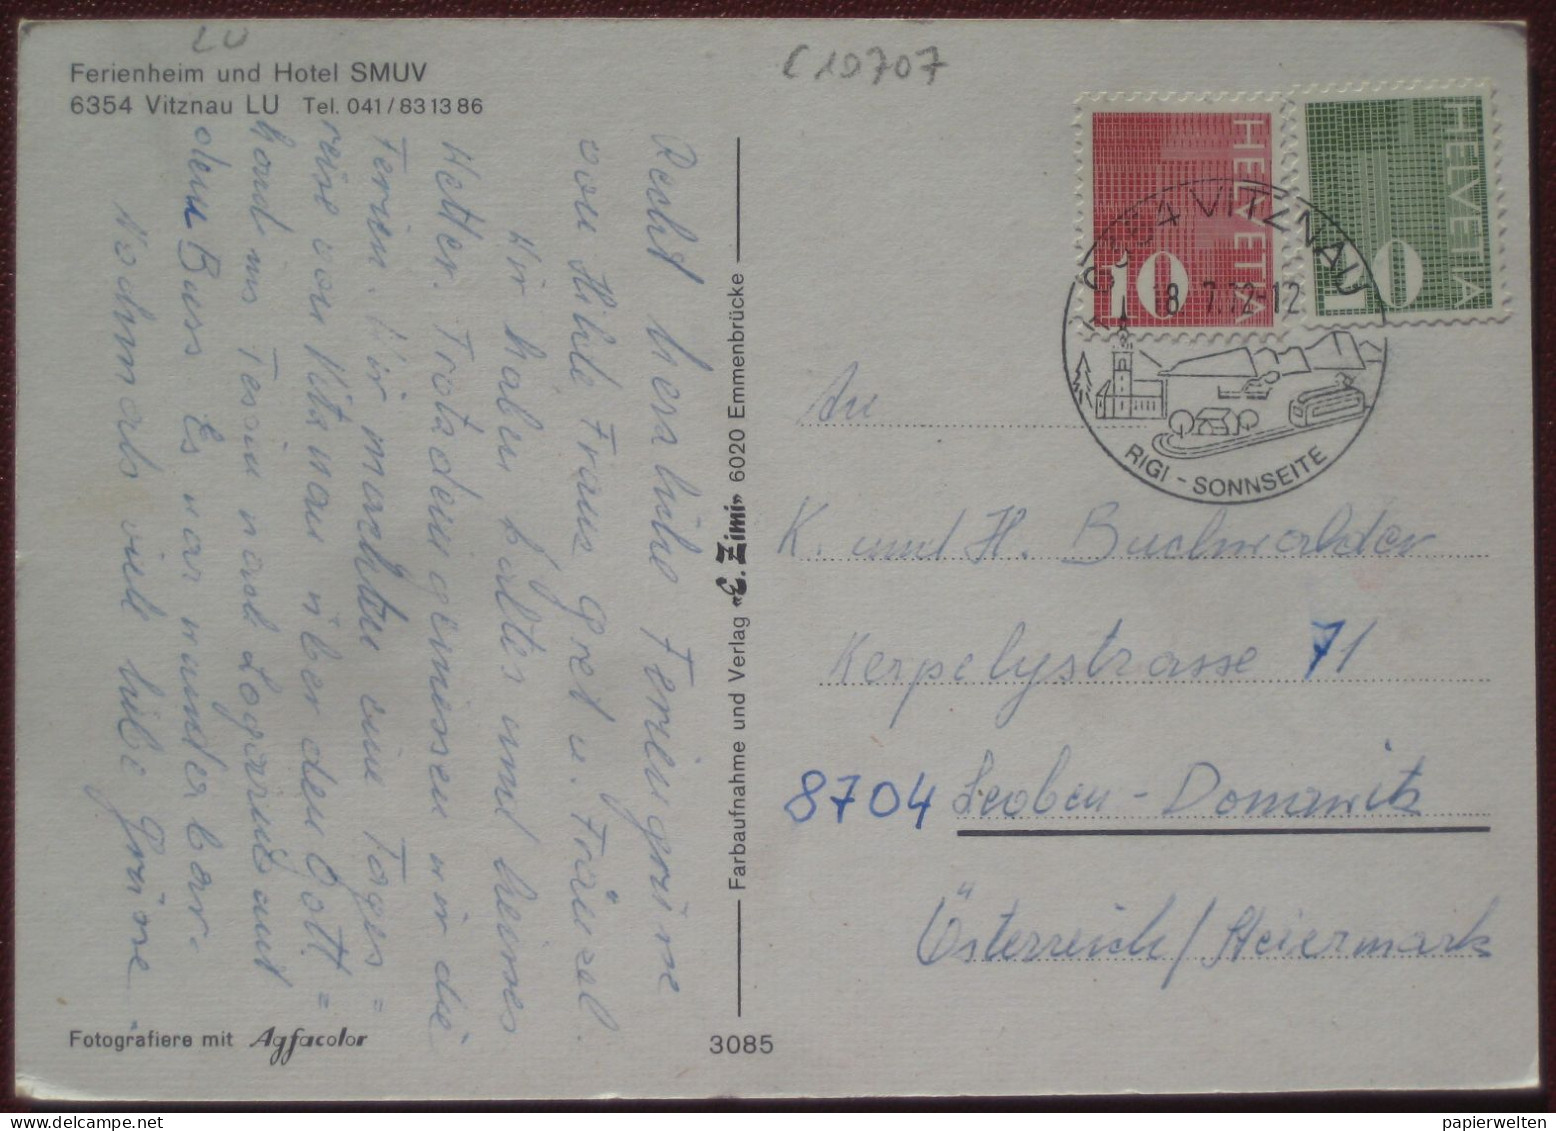 LU
Ferienheim und Hotel SMUV
6354 Vitznau LU Tel. 041/83 13 86
C 10707
HELVETIA
10
HELVETIA
10
6354 VITZNAU
18.7.72-12
RIGI - SONNSEITE
Recht herzliche Feriengrüsse
von Hilde Fraus Gret u. Fränzl.
Wir haben kaltes und heisses
Wetter. Trotzdem geniessen wir die
Ferien. Wir machten eine Tages=
reise von Vitznau über den Gott=
hard ins Tessin nach Logarno und
dem Bass Es war wunderbar.
Nochmals viele liebe Grüsse
Farbaufnahme und Verlag «E. Zimi» 6020 Emmenbrücke
An
K. und H. Buchwalder
Kerpelystrasse 71
8704 Leoben - Donawitz
Österreich / Steiermark
Fotografiere mit Agfacolor
3085
papierwelten